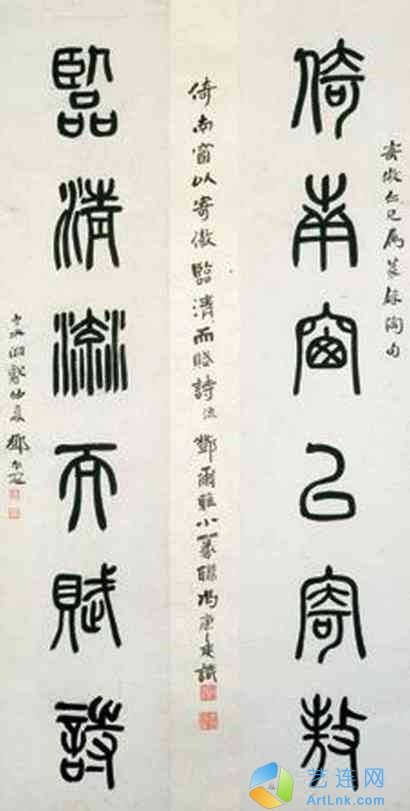 寄傲仁兄屬篆錄陶句
倚南窗㠯寄敖
倚南窗以寄傲臨清而賦詩 流 鄧爾雅小篆聯馮康侯識
臨清流而賦詩
仲夏鄧爾疋
艺连网
ArtLnk.com